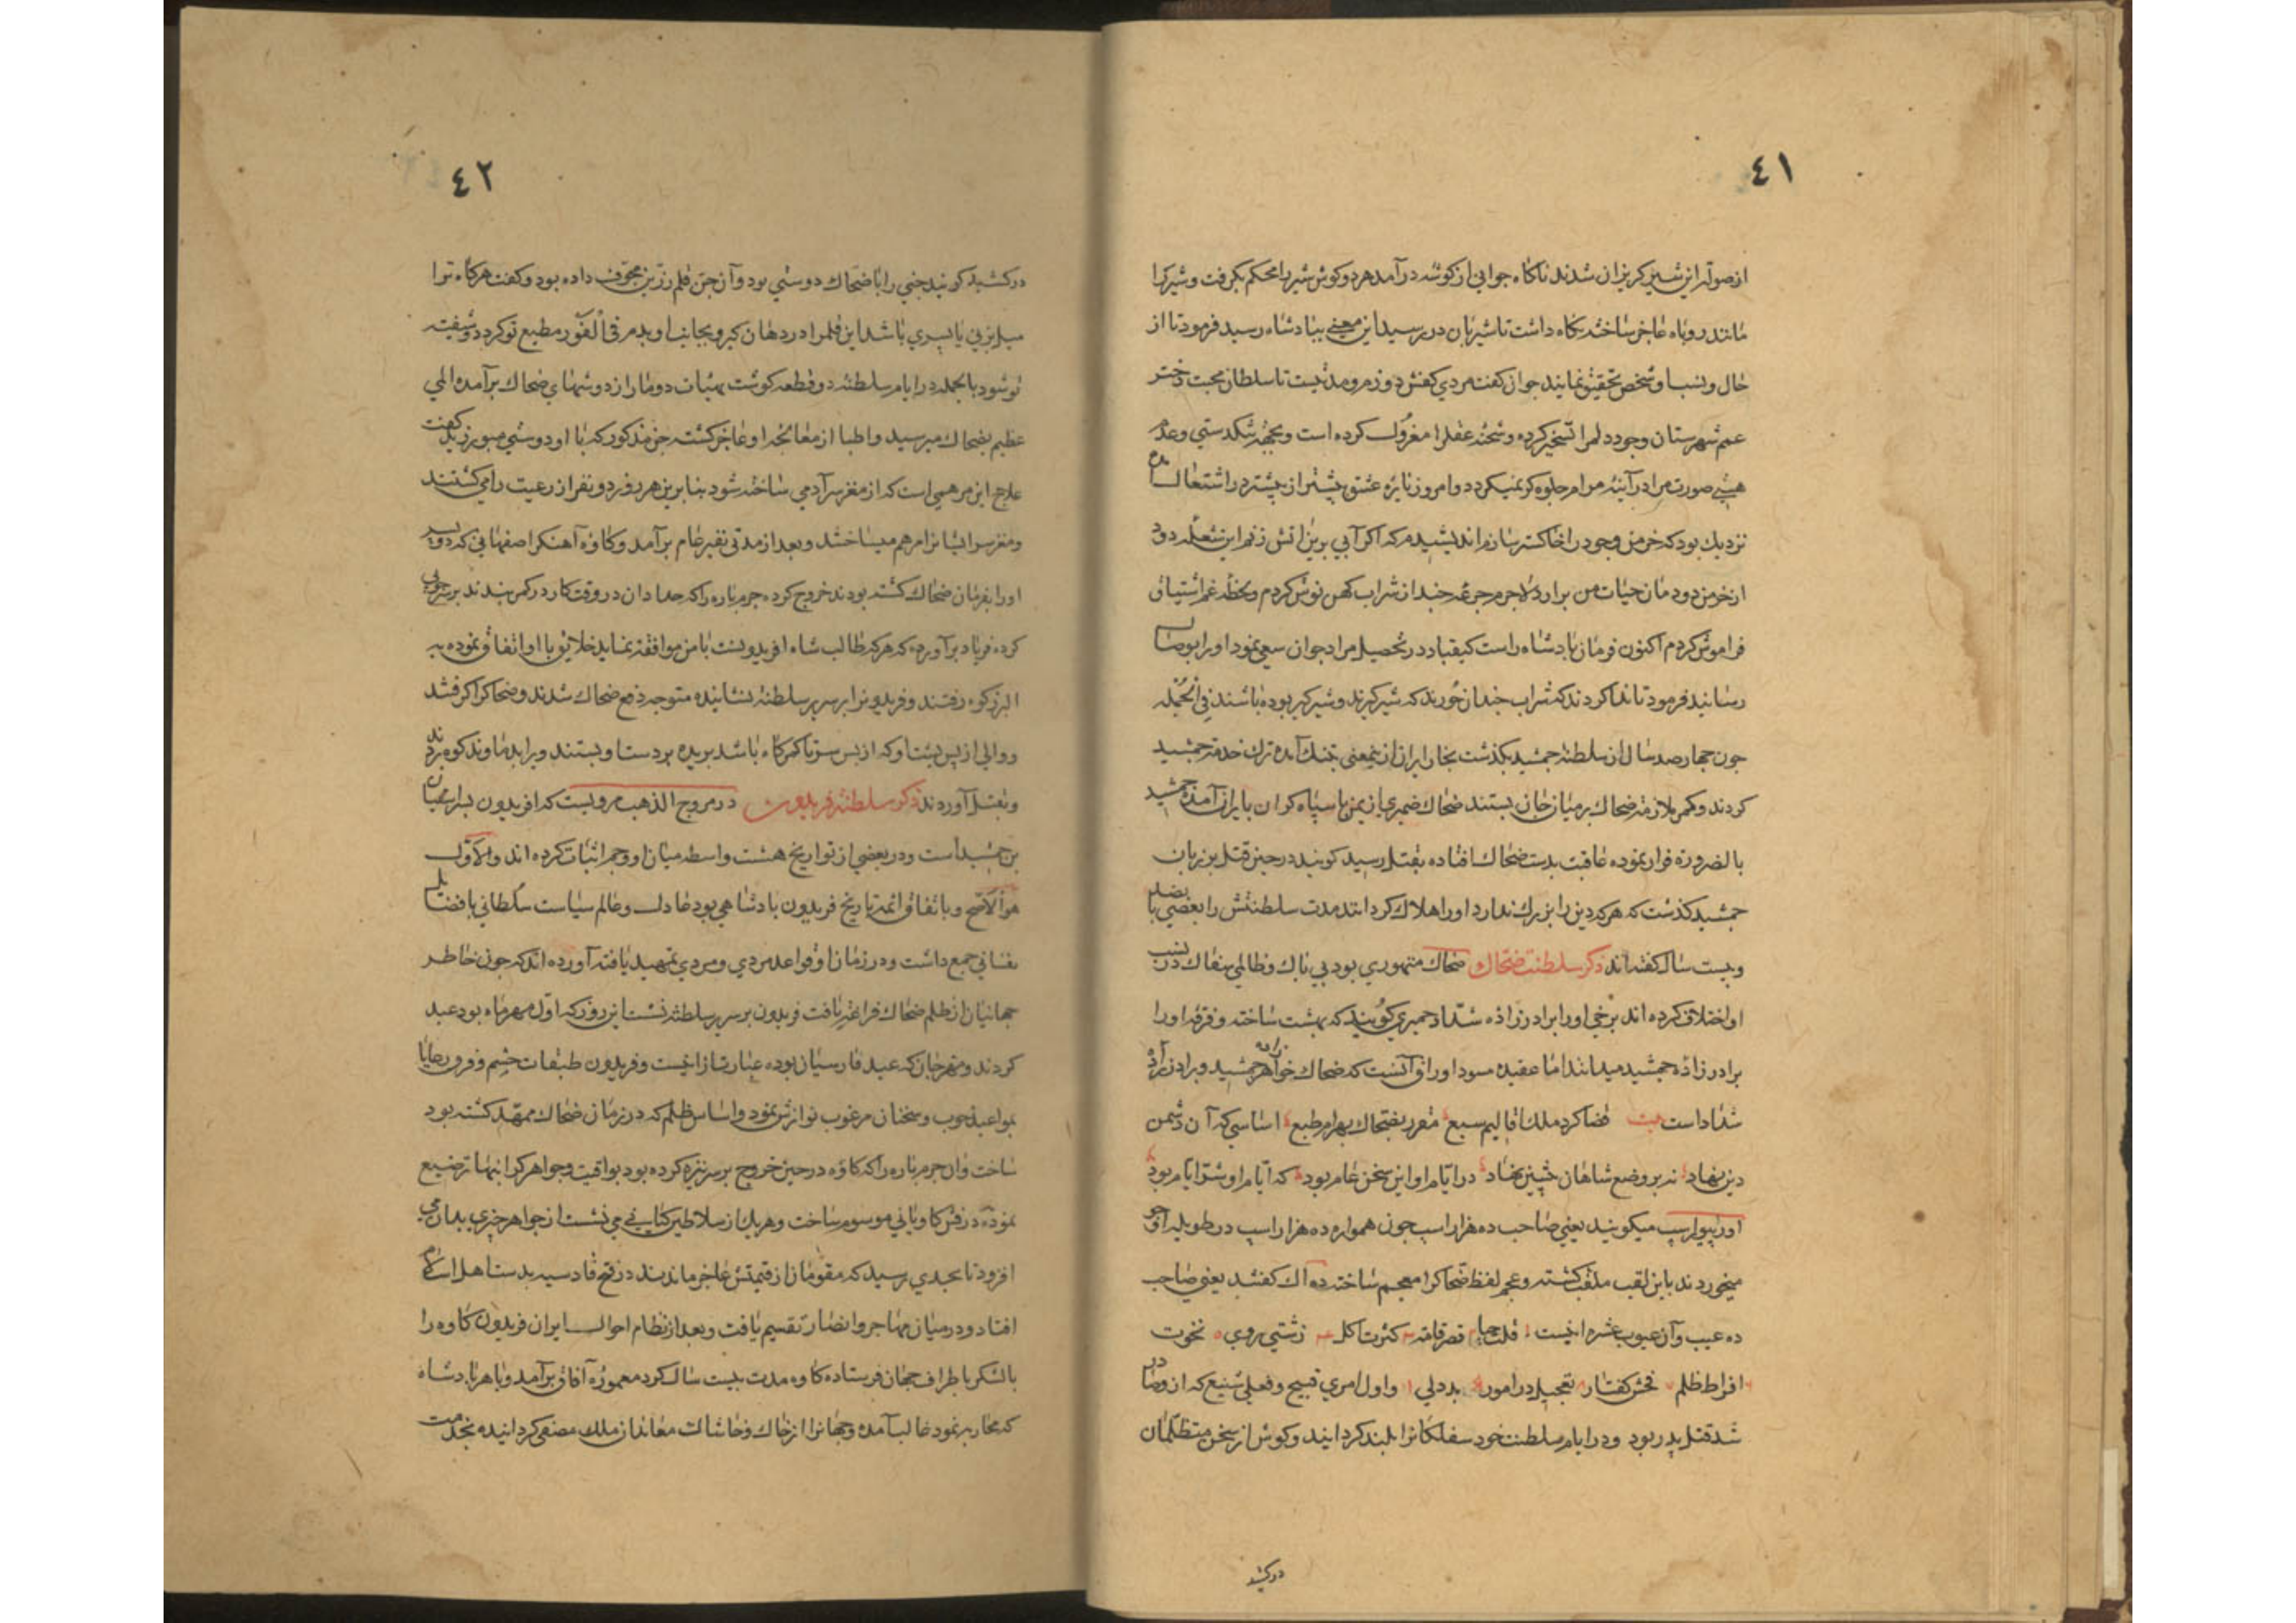 ٤١
از صولت این شیر گریزان شدند ناگاه جوانی از گوشه درآمد هر دو گوش شیر را محکم بگرفت و شیر را
مانند روباه عاجز ساخته نگاه داشت تا شیربان در رسید این معنی بپادشاه رسید فرمود تا از
حال و نسب او شخص تحقیق نمایند جوان گفت مردی کفش دوزم و مدتیست تا سلطان محبت دختر
عمم شهرستان وجود دلمرا تسخیر کرده و شحنه عقلرا معزول کرده است و بجهة تنکدستی و عدم
هیچ صورت مراد در آینه مرام جلوه کر نمیکردد و امروز نایره عشق بیشتر از پیشتر در اشتعال
نزدیك بود که خرمن وجود را خاکستر سازم اندیشیدم که اکر آبی برین اتش نزنم این شعله دود
از خرمن دودمان حیات من برارد لاجرم جرعهٔ چند از شراب کهن نوش کردم و بلحظه غم اشتیاق
فراموش کردم اکنون فرمان پادشاه راست کیقباد در تحصیل مراد جوان سعی نمود او را بوصال
رسانید فرمود تا ندا کردند که شراب چندان خورند که شیر کیرند و شیرکیر بوده باشند فی الجمله
چون چهارصد سال از سلطنة جمشید بکذشت بخار ایران از ینمعنی بتنك آمده ترك خدمة جمشید
کردند و کمر ملازمة ضحاك بر میان جان بستند ضحاك حمیری از یمن با سپاه کران بایران آمده جمشید
بالضرورة فرار نموده عاقبت بدست ضحاك افتاده بقتل رسید کویند در حین قتل بر زبان
جمشید کذشت که هر که دین را بزرك ندارد او را هلاك کردانند مدت سلطنتش را بعضی پانصد
و بیست سال کفته اند ذکر سلطنت ضحاك ضحاك متهوری بود بی باك و ظالمی سفاك در نسب
او اختلاف کرده اند برخی او را برادرزاده شداد حمیری کویند که بهشت ساخته و فرقه او را
برادرزاده جمشید میدانند اما عقیده مسود اوراق آنست که ضحاك خواهرزاده جمشید و برادرزاده
شداد است بیت قضا کرد ملك اقالیم سبع مقرر بضحاك بهرام طبع اساسی که آن دشمن
دین نهاد نه بر وضع شاهان پیشین نهاد در ایام او این سخن عام بود که ایام او شر ایام بود
او را بیوراسپ میکویند یعنی صاحب ده هزار اسپ چون همواره ده هزار اسپ در طویله او جو
میخوردند باین لقب ملقب کشته و عجم لفظ ضحاکرا معجم ساخته ده اك کفتند یعنی صاحب
ده عیب و آن عیوب عشره اینست قلت حیا قصر قامة کثرت اکل زشتی روی نخوت
افراط ظلم فحش کفتار تعجیل در امور بددلی و اول امری قبیح و فعلی شنیع که ازو صادر
شد قتل پدر بود و در ایام سلطنت خود سفلکانرا بلند کردانید و کوش از سخن متظلمان
درکشید
٤٢
درکشید کویند جنی را با ضحاك دوستی بود و آن جن قلم زرین مجوف داده بود و کفت هرکاه ترا
میل بزنی یا پسری باشد این قلمرا در دهان کیر و بجانب او بدم فی الفور مطیع تو کردد و شیفته
تو شود بالجمله در ایام سلطنة دو قطعه کوشت بهیأت دو مار از دوشهای ضحاك برآمده المی
عظیم بضحاك میرسید و اطبا از معالجه او عاجز کشته جن مذکور که با او دوستی میورزید کفت
علاج این مرهمی است که از مغز سر آدمی ساخته شود بنابرین هر روز دو نفر از رعیت را میکشتند
و مغز سر ایشانرا مرهم میساختند و بعد از مدتی نفیر عام برآمد و کاوه آهنکر اصفهانی که دو پسر
او را بفرمان ضحاك کشته بودند خروج کرده چرم پاره را که حدادان در وقت کار در کمر بندند بر سر چوبی
کرده فریاد برآورده که هرکه طالب شاه افریدونست با من موافقة نماید خلایق با او اتفاق نموده به
البرز کوه رفتند و فریدونرا بر سریر سلطنة نشانیده متوجه دفع ضحاك شدند و ضحاکرا کرفتند
و دوالی از پس پشت او که از پس سر تا کمرکاه باشد بریده بر دست او بستند و برا بدماوند کوه بردند
و بقتل آوردند ذکر سلطنة فریدون در مروج الذهب مرویست که افریدون پسر اثفیان
بن جمشید است و در بعضی از تواریخ هشت واسطه میان او و جم اثبات کرده اند والاول
هو الاصح و باتفاق ائمة تاریخ فریدون پادشاهی بود عادل و عالم سیاست سلطانی با فضایل
نفسانی جمع داشت و در زمان او قواعد مردی و مردمی تمهید یافته آورده اند که چون خاطر
جهانیان از ظلم ضحاك فراغة یافت فریدون بر سریر سلطنة نشست این روز که اول مهرماه بود عید
کردند و مهرجان که عید فارسیان بوده عبارت ازانست و فریدون طبقات حشم و فرق رعایا
بمواعید خوب و سخنان مرغوب نوازش نمود و اساس ظلم که در زمان ضحاك ممهد کشته بود
ساخت و ان چرم پاره را که کاوه در حین خروج بر سر نیزه کرده بود بیواقیت و جواهر کرانبها ترصیع
نموده درفش کاویانی موسوم ساخت و هریك از سلاطین کیانی که می نشست از جواهر چیزی بدان می
افزود تا بحدی رسید که مقومان از قیمتش عاجز ماندند در فتح قادسیه بدست اهل اسلام
افتاد و در میان مهاجر و انصار تقسیم یافت و بعد از نظام احوال ایران فریدون کاوه را
با لشکر باطراف جهان فرستاده کاوه مدت بیست سال کرد معموره آفاق برآمد و با هر پادشاه
که محاربه نمود غالب آمده و جهانرا از خاك و خاشاك معاندان ملك مصفی کردانیده بخدمت